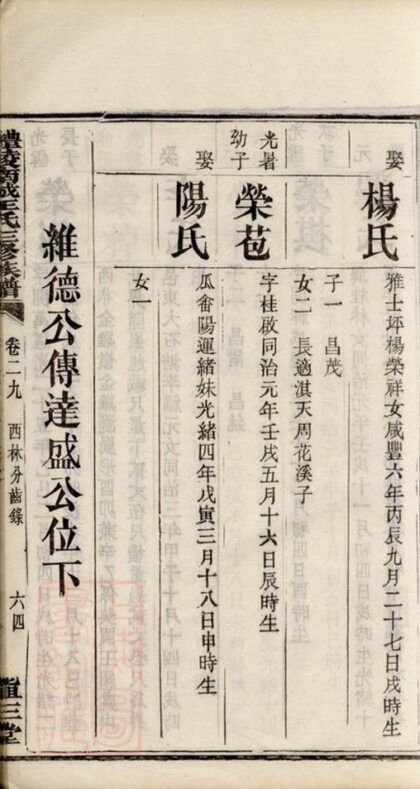 娶
楊氏
雅士坪楊榮祥女咸豐六年丙辰九月二十七日戌時生
子一 昌茂
女二 長適淇天周花溪子
光暑
幼子
榮苞
字桂啟同治元年壬戌五月十六日辰時生
娶
陽氏
瓜畬陽運緒妹光緒四年戊寅三月十八日申時生
女一
維德公傳達盛公位下
醴陵南城王氏三修族譜
卷二九
西林分齒錄
六四
三堂